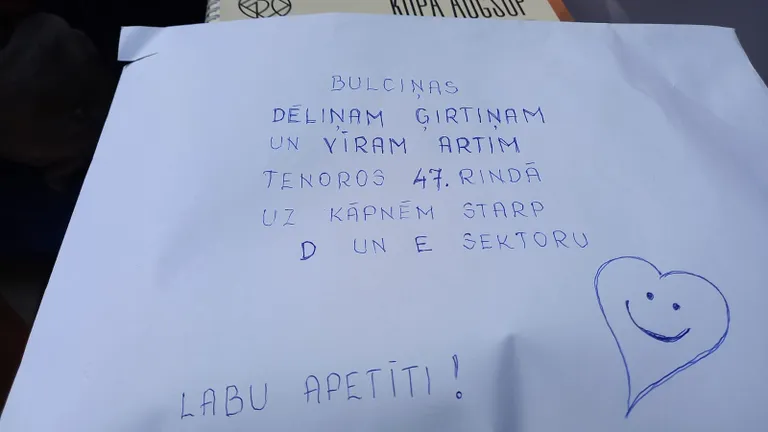 KOPĀ AUGŠUP
BULCIŅAS
DĒLIŅAM ĢIRTIŅAM
UN VĪRAM ARTIM
TENOROS 47. RINDĀ
UZ KĀPNĒM STARP
D UN E SEKTORU
LABU APETĪTI!